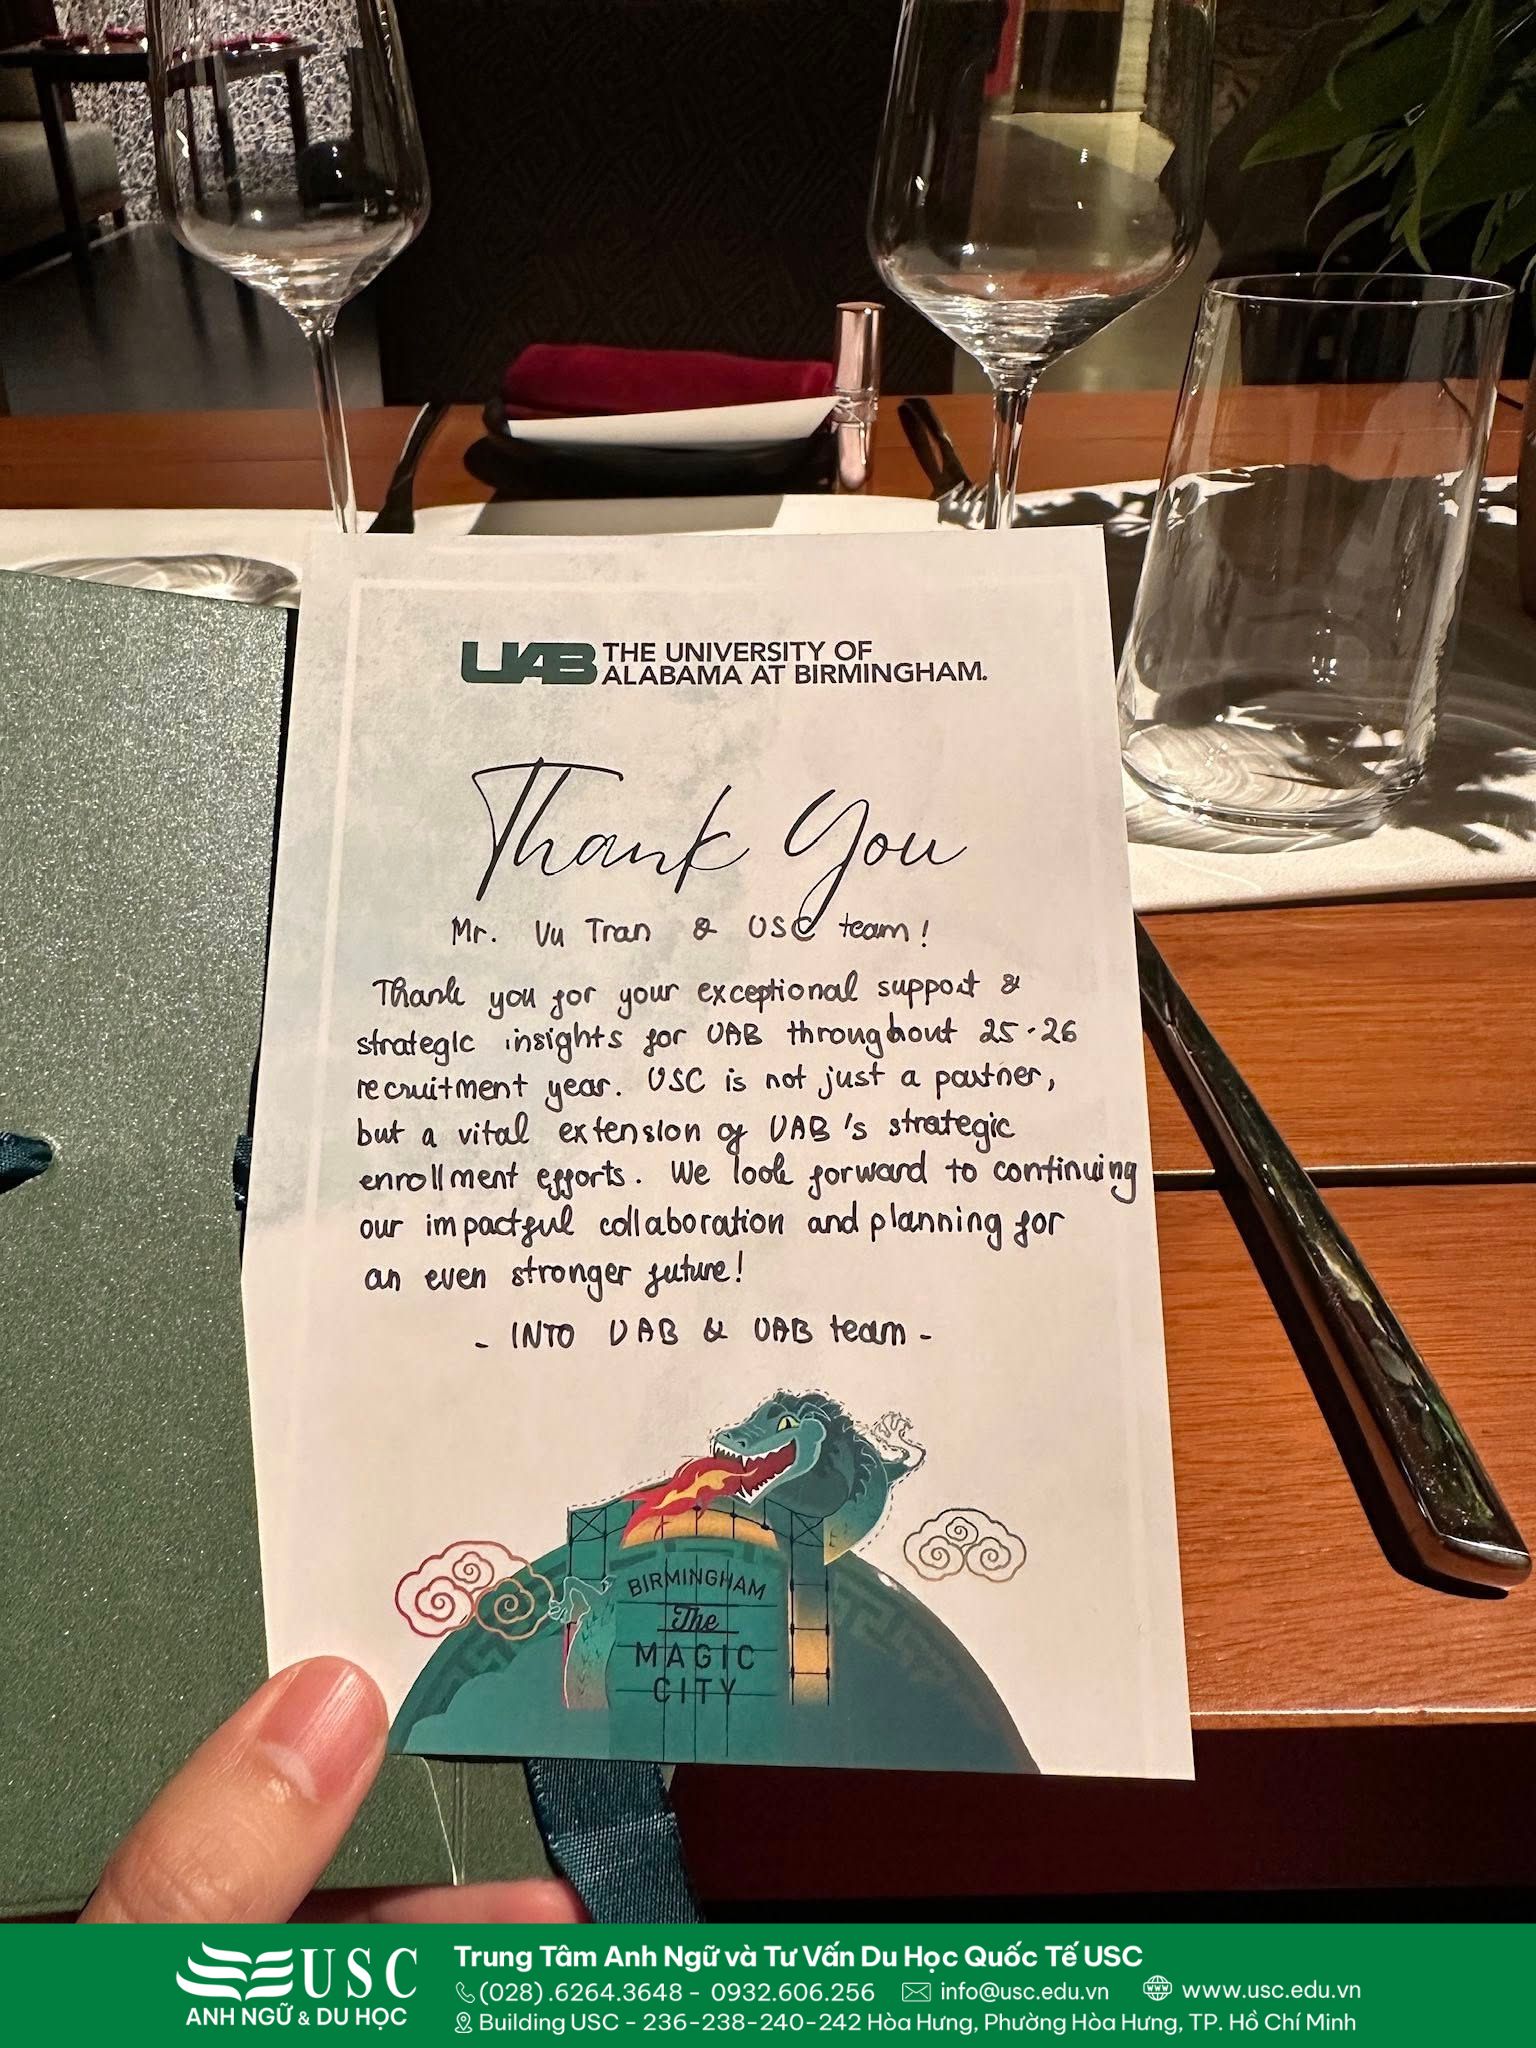 UAB THE UNIVERSITY OF
ALABAMA AT BIRMINGHAM.
Thank You
Mr. Vu Tran & USC team!
Thank you for your exceptional support &
strategic insights for UAB throughout 25-26
recruitment year. USC is not just a partner,
but a vital extension of UAB's strategic
enrollment efforts. We look forward to continuing
our impactful collaboration and planning for
an even stronger future!
- INTO UAB & UAB team -
BIRMINGHAM
The
MAGIC
CITY
USC
ANH NGỮ & DU HỌC
Trung Tâm Anh Ngữ và Tư Vấn Du Học Quốc Tế USC
(028) .6264.3648 - 0932.606.256 info@usc.edu.vn www.usc.edu.vn
Building USC - 236-238-240-242 Hòa Hưng, Phường Hòa Hưng, TP. Hồ Chí Minh